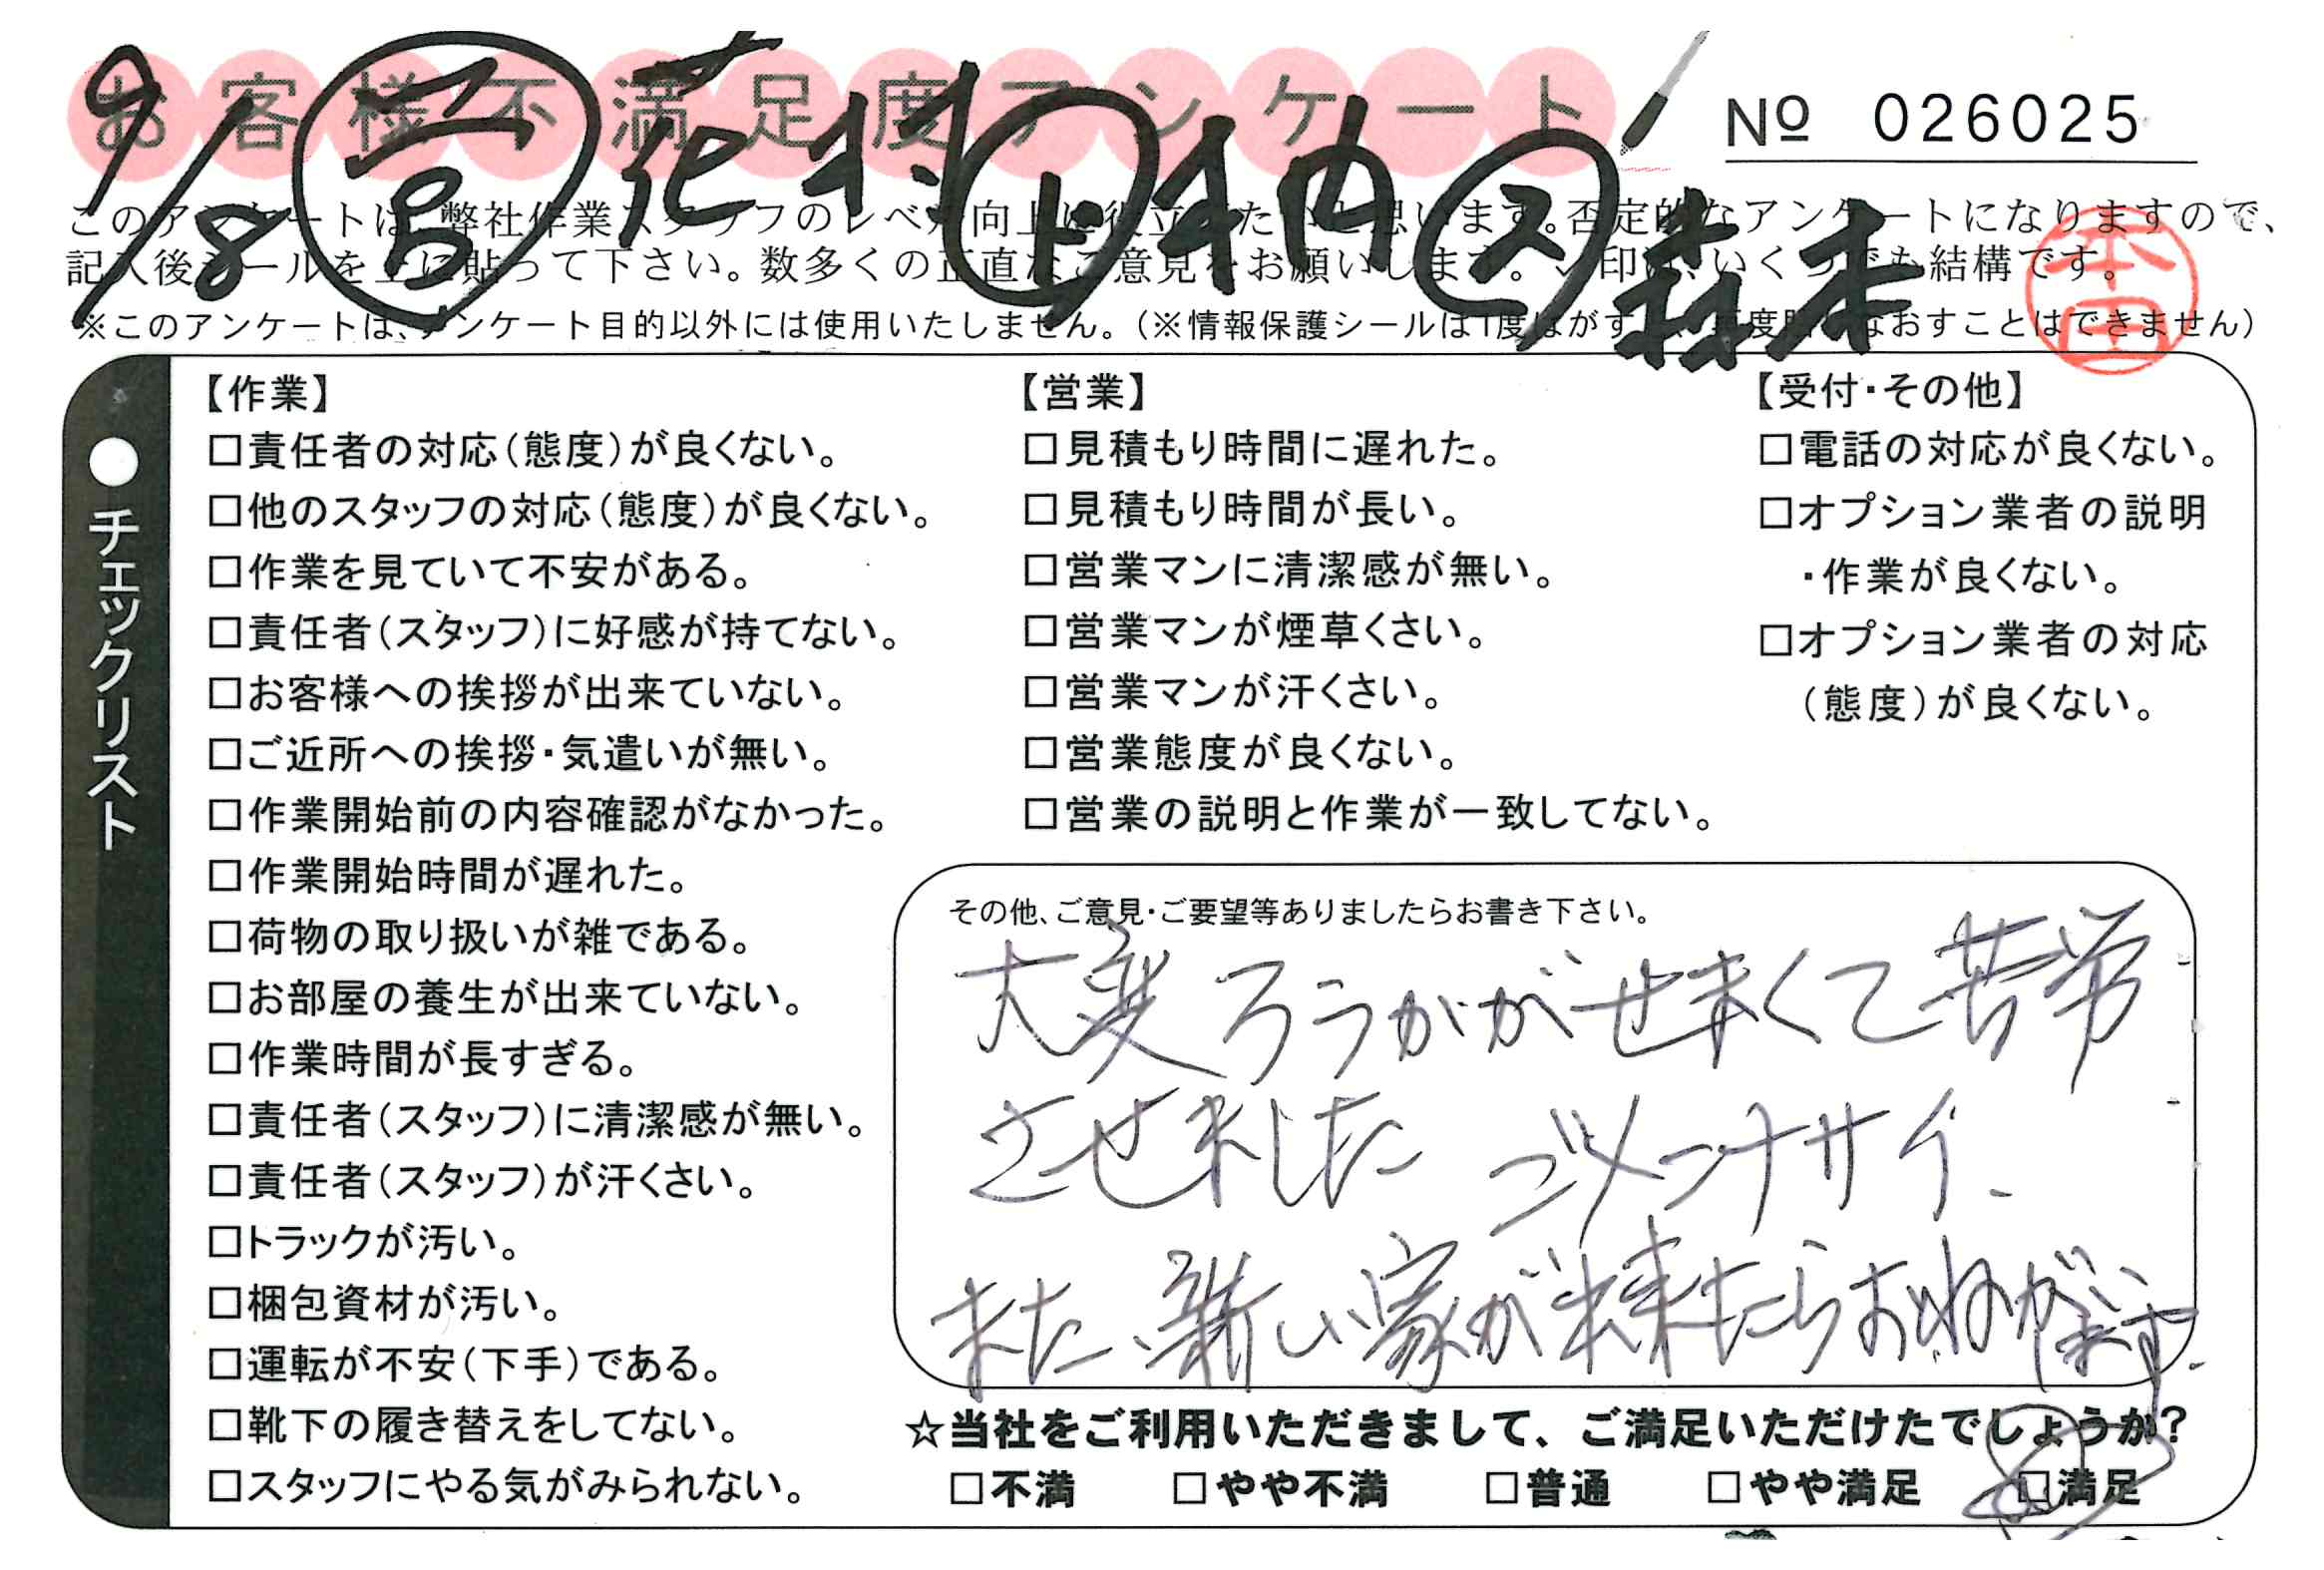 お客様不満足度アンケート
№ 026025
9/8 営 花村 上 柚 ス 森本
本田
このアンケートは、弊社作業スタッフのレベル向上に役立てたいと思います。否定的なアンケートになりますので、
記入後シールを上に貼って下さい。数多くの正直なご意見をお願いします。✓印は、いくつでも結構です。
※このアンケートは、アンケート目的以外には使用いたしません。(※情報保護シールは1度はがすと、再度貼りなおすことはできません)
●チェックリスト
【作業】
□責任者の対応(態度)が良くない。
□他のスタッフの対応(態度)が良くない。
□作業を見ていて不安がある。
□責任者(スタッフ)に好感が持てない。
□お客様への挨拶が出来ていない。
□ご近所への挨拶・気遣いが無い。
□作業開始前の内容確認がなかった。
□作業開始時間が遅れた。
□荷物の取り扱いが雑である。
□お部屋の養生が出来ていない。
□作業時間が長すぎる。
□責任者(スタッフ)に清潔感が無い。
□責任者(スタッフ)が汗くさい。
□トラックが汚い。
□梱包資材が汚い。
□運転が不安(下手)である。
□靴下の履き替えをしてない。
□スタッフにやる気がみられない。
【営業】
□見積もり時間に遅れた。
□見積もり時間が長い。
□営業マンに清潔感が無い。
□営業マンが煙草くさい。
□営業マンが汗くさい。
□営業態度が良くない。
□営業の説明と作業が一致してない。
【受付・その他】
□電話の対応が良くない。
□オプション業者の説明
・作業が良くない。
□オプション業者の対応
(態度)が良くない。
その他、ご意見・ご要望等ありましたらお書き下さい。
大変ろうかがせまくて苦労
させました ゴメンナサイ.
また、新しい家が出来たらおねがいします.
☆当社をご利用いただきまして、ご満足いただけたでしょうか?
□不満 □やや不満 □普通 □やや満足 □満足